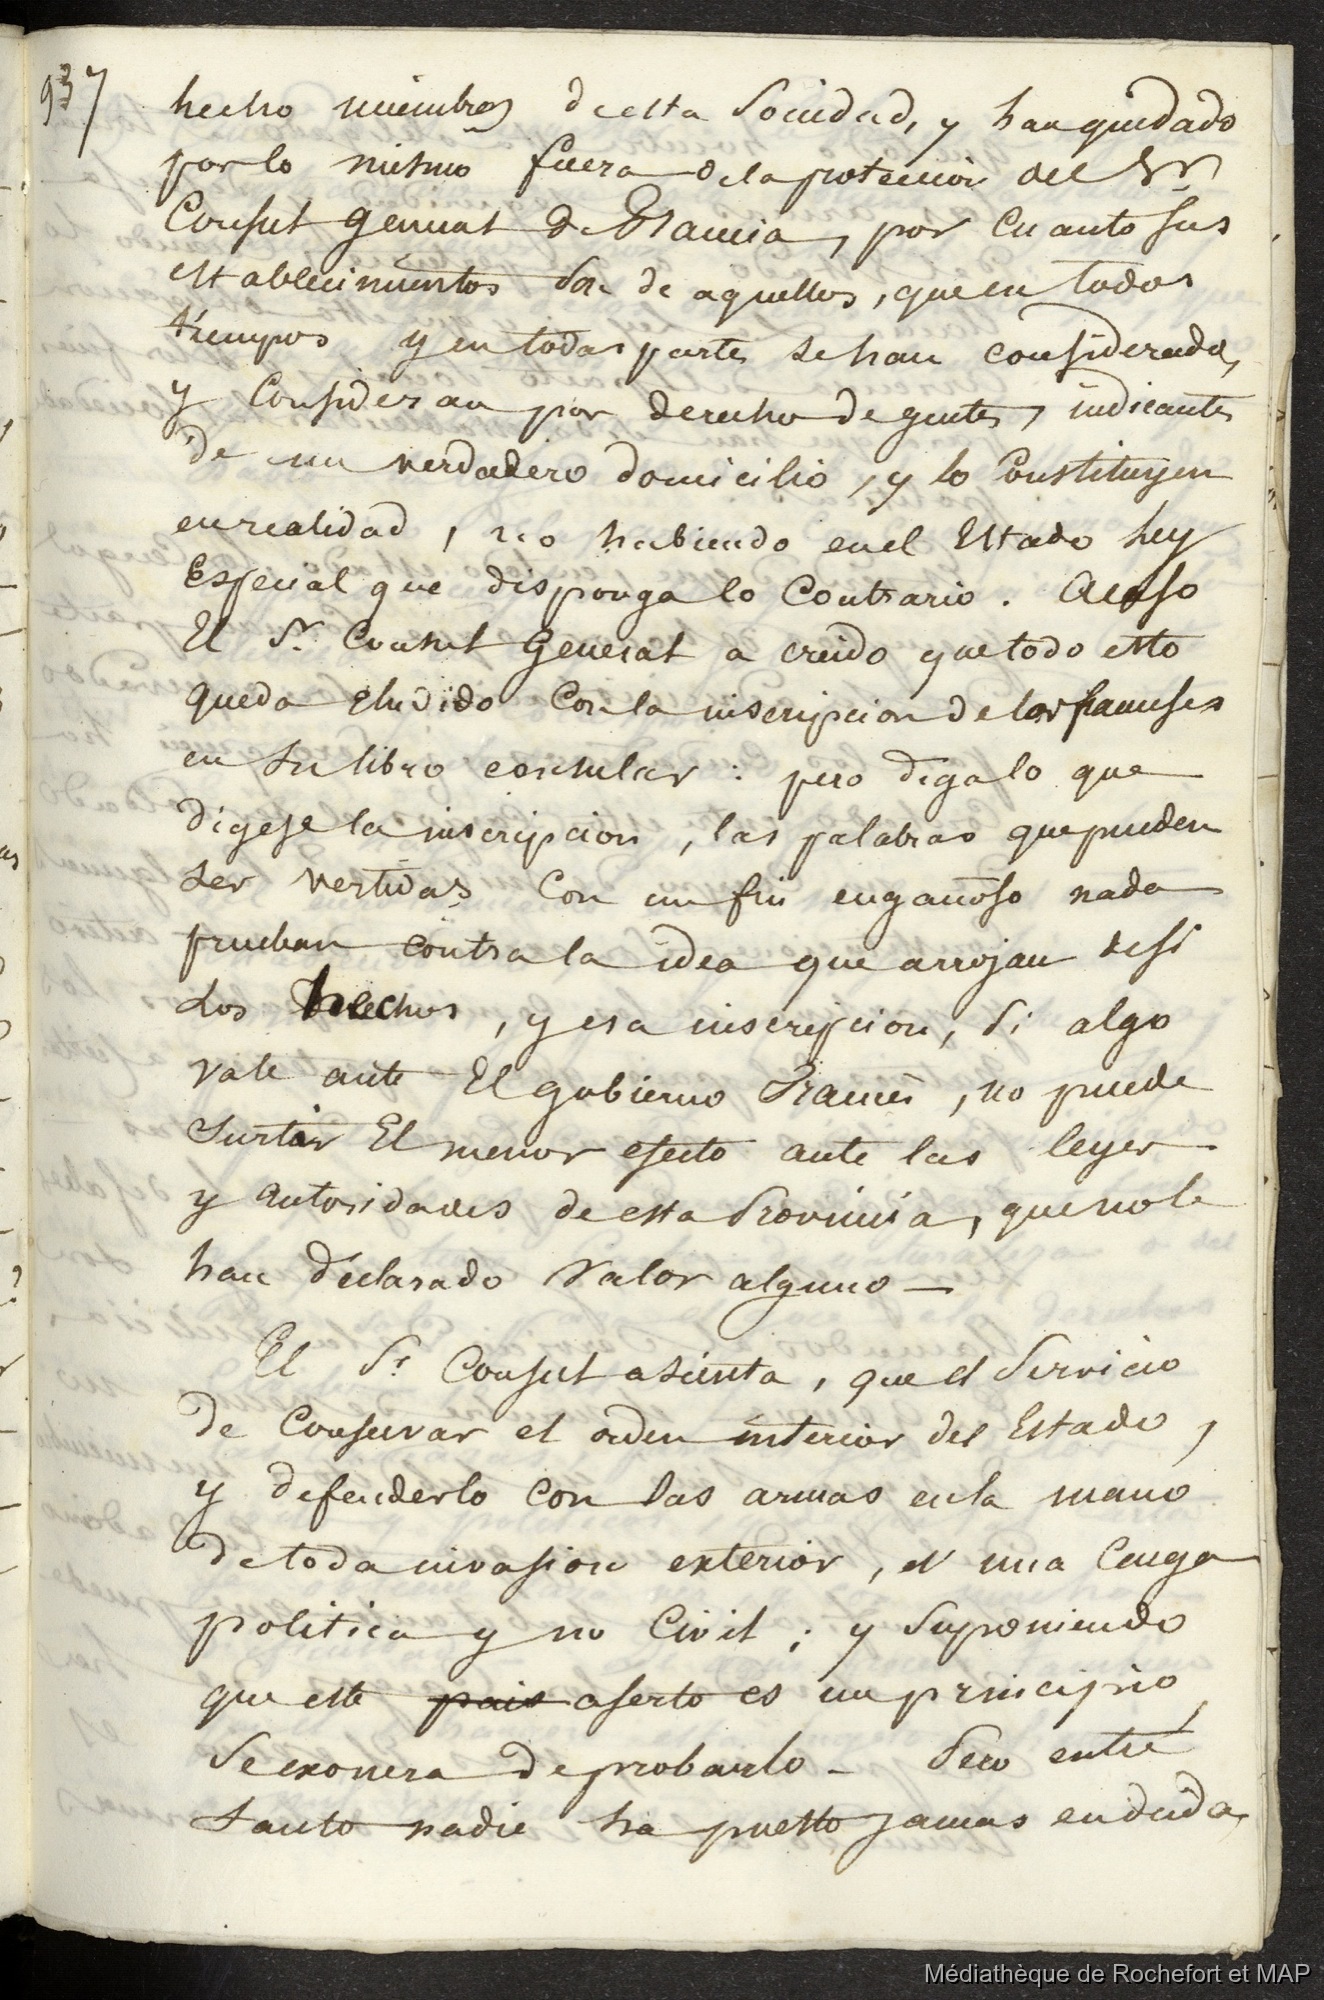 937
hecho miembros de esta Sociedad, y han quedado
por lo mismo fuera de la proteccion del Sr
Consul General de Francia, por cuanto sus
establecimientos son de aquellos, que en todos
tiempos y en todas partes se han considerado,
y Consideran por derecho de gentes, indicantes
de un verdadero domicilio, y lo Constituyen
en realidad, no habiendo en el Estado Ley
Especial que disponga lo Contrario. Acaso
El Sr. Consul General a creido que todo esto
queda Eludido Con la inscripcion de los franceses
en su libro consular: pero digalo que
digese la inscripcion, las palabras que pueden
ser vertidas Con un fin engañoso nada
prueban contra la idea que arrojan de si
Los hechos, y esa inscripcion, Si algo
vale ante El gobierno Frances, no puede
surtir El menor efecto ante las leyes
y autoridades de esta Provincia, que no le
han declarado Valor alguno —
El Sr Consul asienta, que el Servicio
de Conservar el orden interior del Estado,
y defenderlo Con las armas en la mano
de toda invasion exterior, es una Carga
politica y no Civil; y Suponiendo
que este pais aserto es un principio,
Se exonera de probarlo — Pero entre
tanto nadie ha puesto jamas en duda,
Médiathèque de Rochefort et MAP